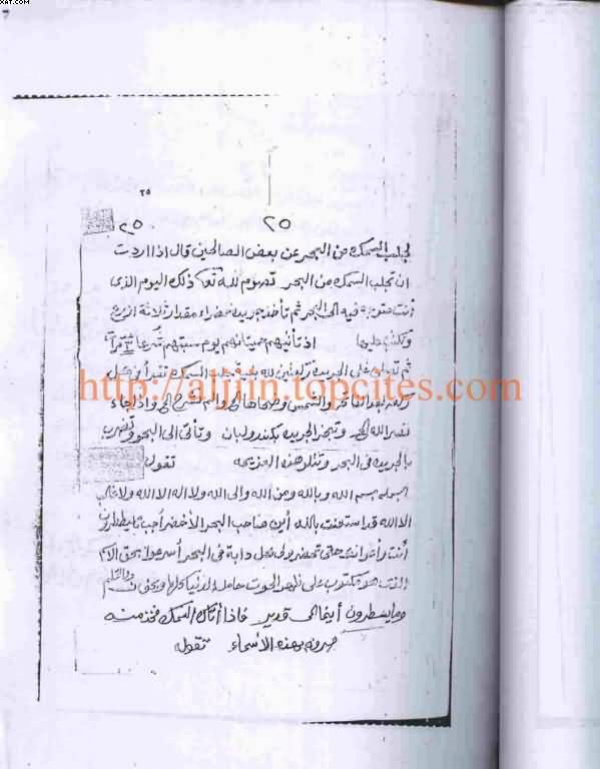 XAT.COM
7
٢٥
٢٥ ٢٥
لجلب السمك من البحر عن بعض الصالحين قال اذا اردت
ان تجلب السمك من البحر تصوم لله تعا ذلك اليوم الذى
أنت متوجه فيه الى البحر ثم تأخذ جريده خضراء مقدار ثلاثة اذرع
وتكتب عليها اذ تأتيهم حيتانهم يوم سبتهم شرعا
ثم تصلى على الجريدة ركعتين لله السمك تقرأ فى كل
http://aljjin.topcites.com
ركعه بعد الفاتحه والشمس وضحاها الى والم نشرح الى واذا جاء
نصر الله الى وتبخر الجريده بكندر ولبان وتأتى الى البحر وتضرب
بالجريده فى البحر وتتلو هذه العزيمه تقول
بسم الله وبالله ومن الله والى الله ولا اله الا الله ولا غالب
الا الله قد استعنت بالله أين صاحب البحر الاخضر أجب
أنت وأعوانك حتى تحضر لى كل دابة فى البحر أسرعوا بحق الاسم
الذى هو مكتوب على ظهر الحوت حامل الدنيا كلها وبحق ن والقلم
وما يسطرون قدير فاذا أتاك السمك فخذ منه
بهذه الأسماء تقول